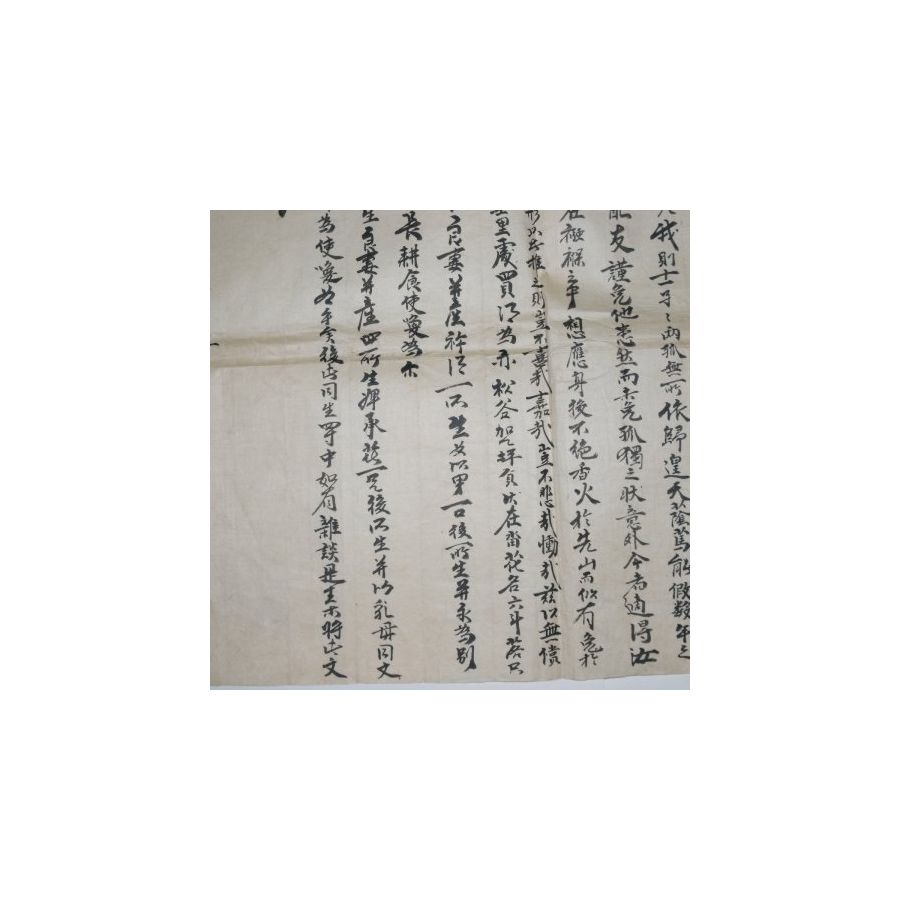 我則士子之兩孤無所依歸皇天蔭篤能假數年之
配友護免他患然而未免孤獨之狀意外今者適得汝
在襁褓之中想應身後不絕香火於先山而似有免於
形以此推之則豈不喜哉嘉哉豈不悲哉慟哉玆以無償
里處買得為亦松谷坪員伏在畓花名六斗落只
良妻并產衿得一所生女以男一口後所生并永為別
長耕食使喚為亦
生良妻并產四所生婢承花一兄後所生并以乳母同文
為使喚為乎矣後此同生等中如有雜談是去等將此文